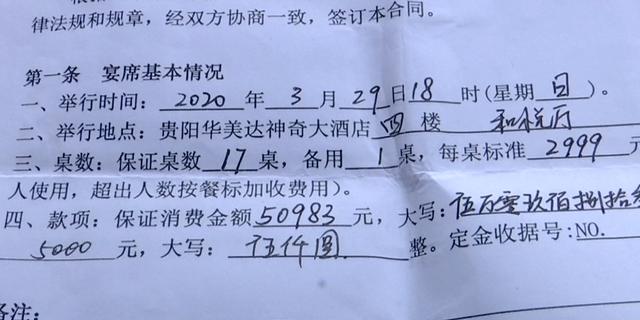 律法规和规章，经双方协商一致，签订本合同。
第一条 宴席基本情况
一、举行时间：2020年3月29日18时(星期日)。
二、举行地点：贵阳华美达神奇大酒店四楼 和悦厅
三、桌数：保证桌数17桌，备用1桌，每桌标准2999元
人使用，超出人数按餐标加收费用）。
四、款项：保证消费金额50983元，大写：伍万零玖佰捌拾叁
5000元，大写：伍仟圆整。定金收据号：NO.
备注：